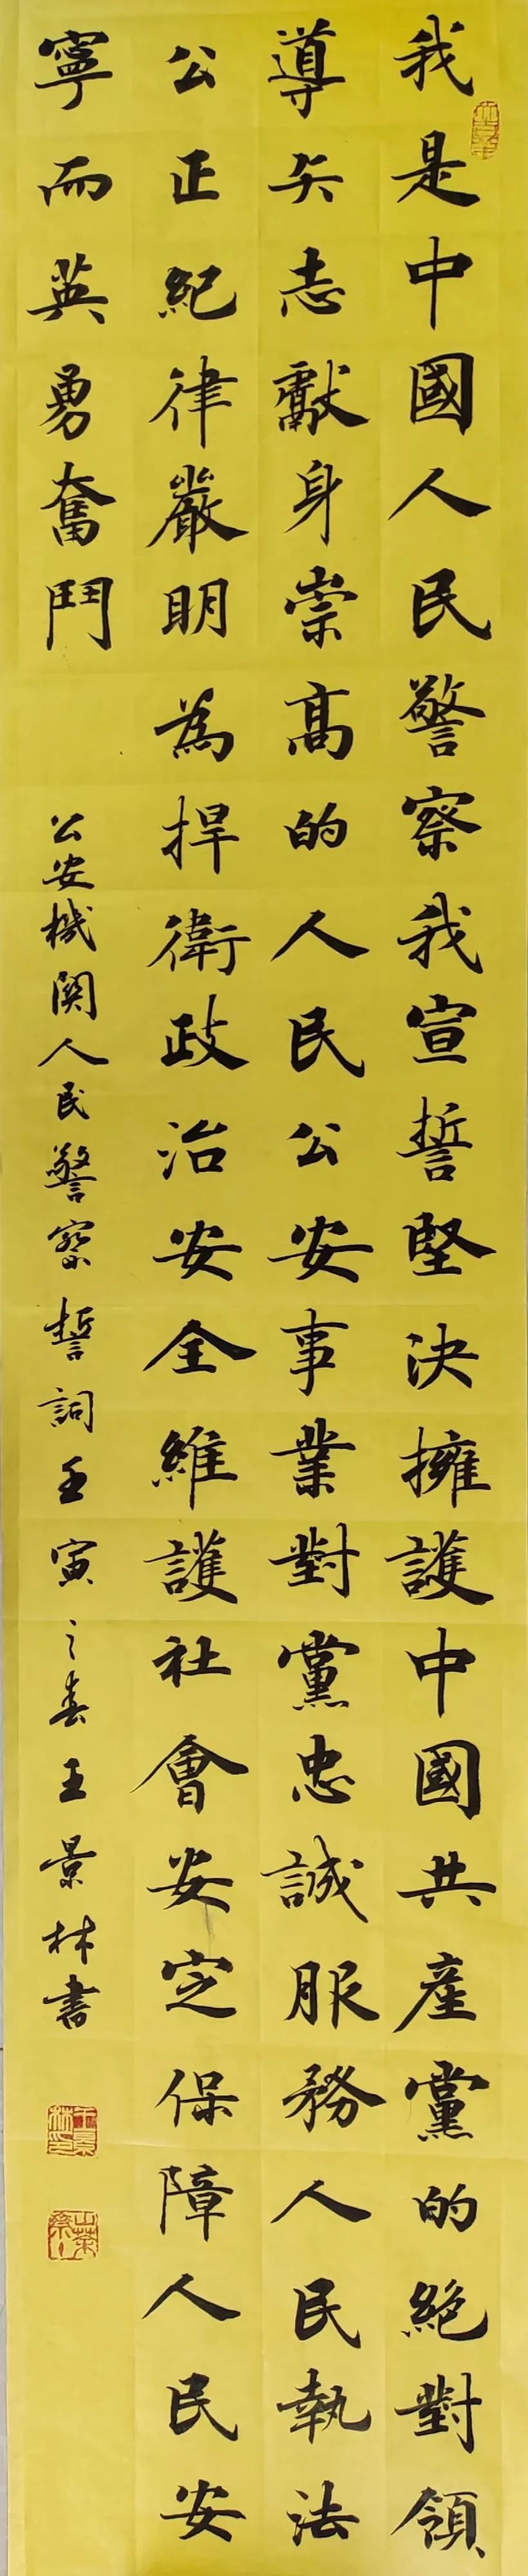 我是中國人民警察我宣誓堅決擁護中國共産黨的絶對領
導矢志獻身崇高的人民公安事業對黨忠誠服務人民執法
公正紀律嚴明為捍衛政治安全維護社會安定保障人民安
寧而英勇奮鬥
公安機関人民警察誓詞壬寅之春王景林書